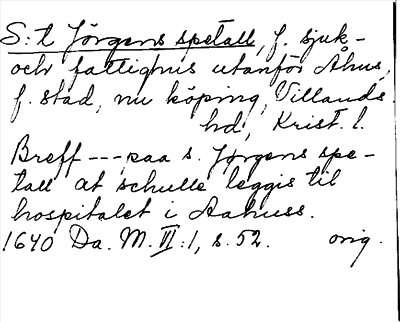 S:t Jörgens spetall, f. sjuk-
och fattighus utanför Åhus,
f. stad, nu köping, Villands
hd, Krist. l.
Breff ---, paa s. Jørgens spe-
tall at schulle leggis til
hospitalet i Aahuss.
1640 Da. M. VI:1, s. 52. orig.